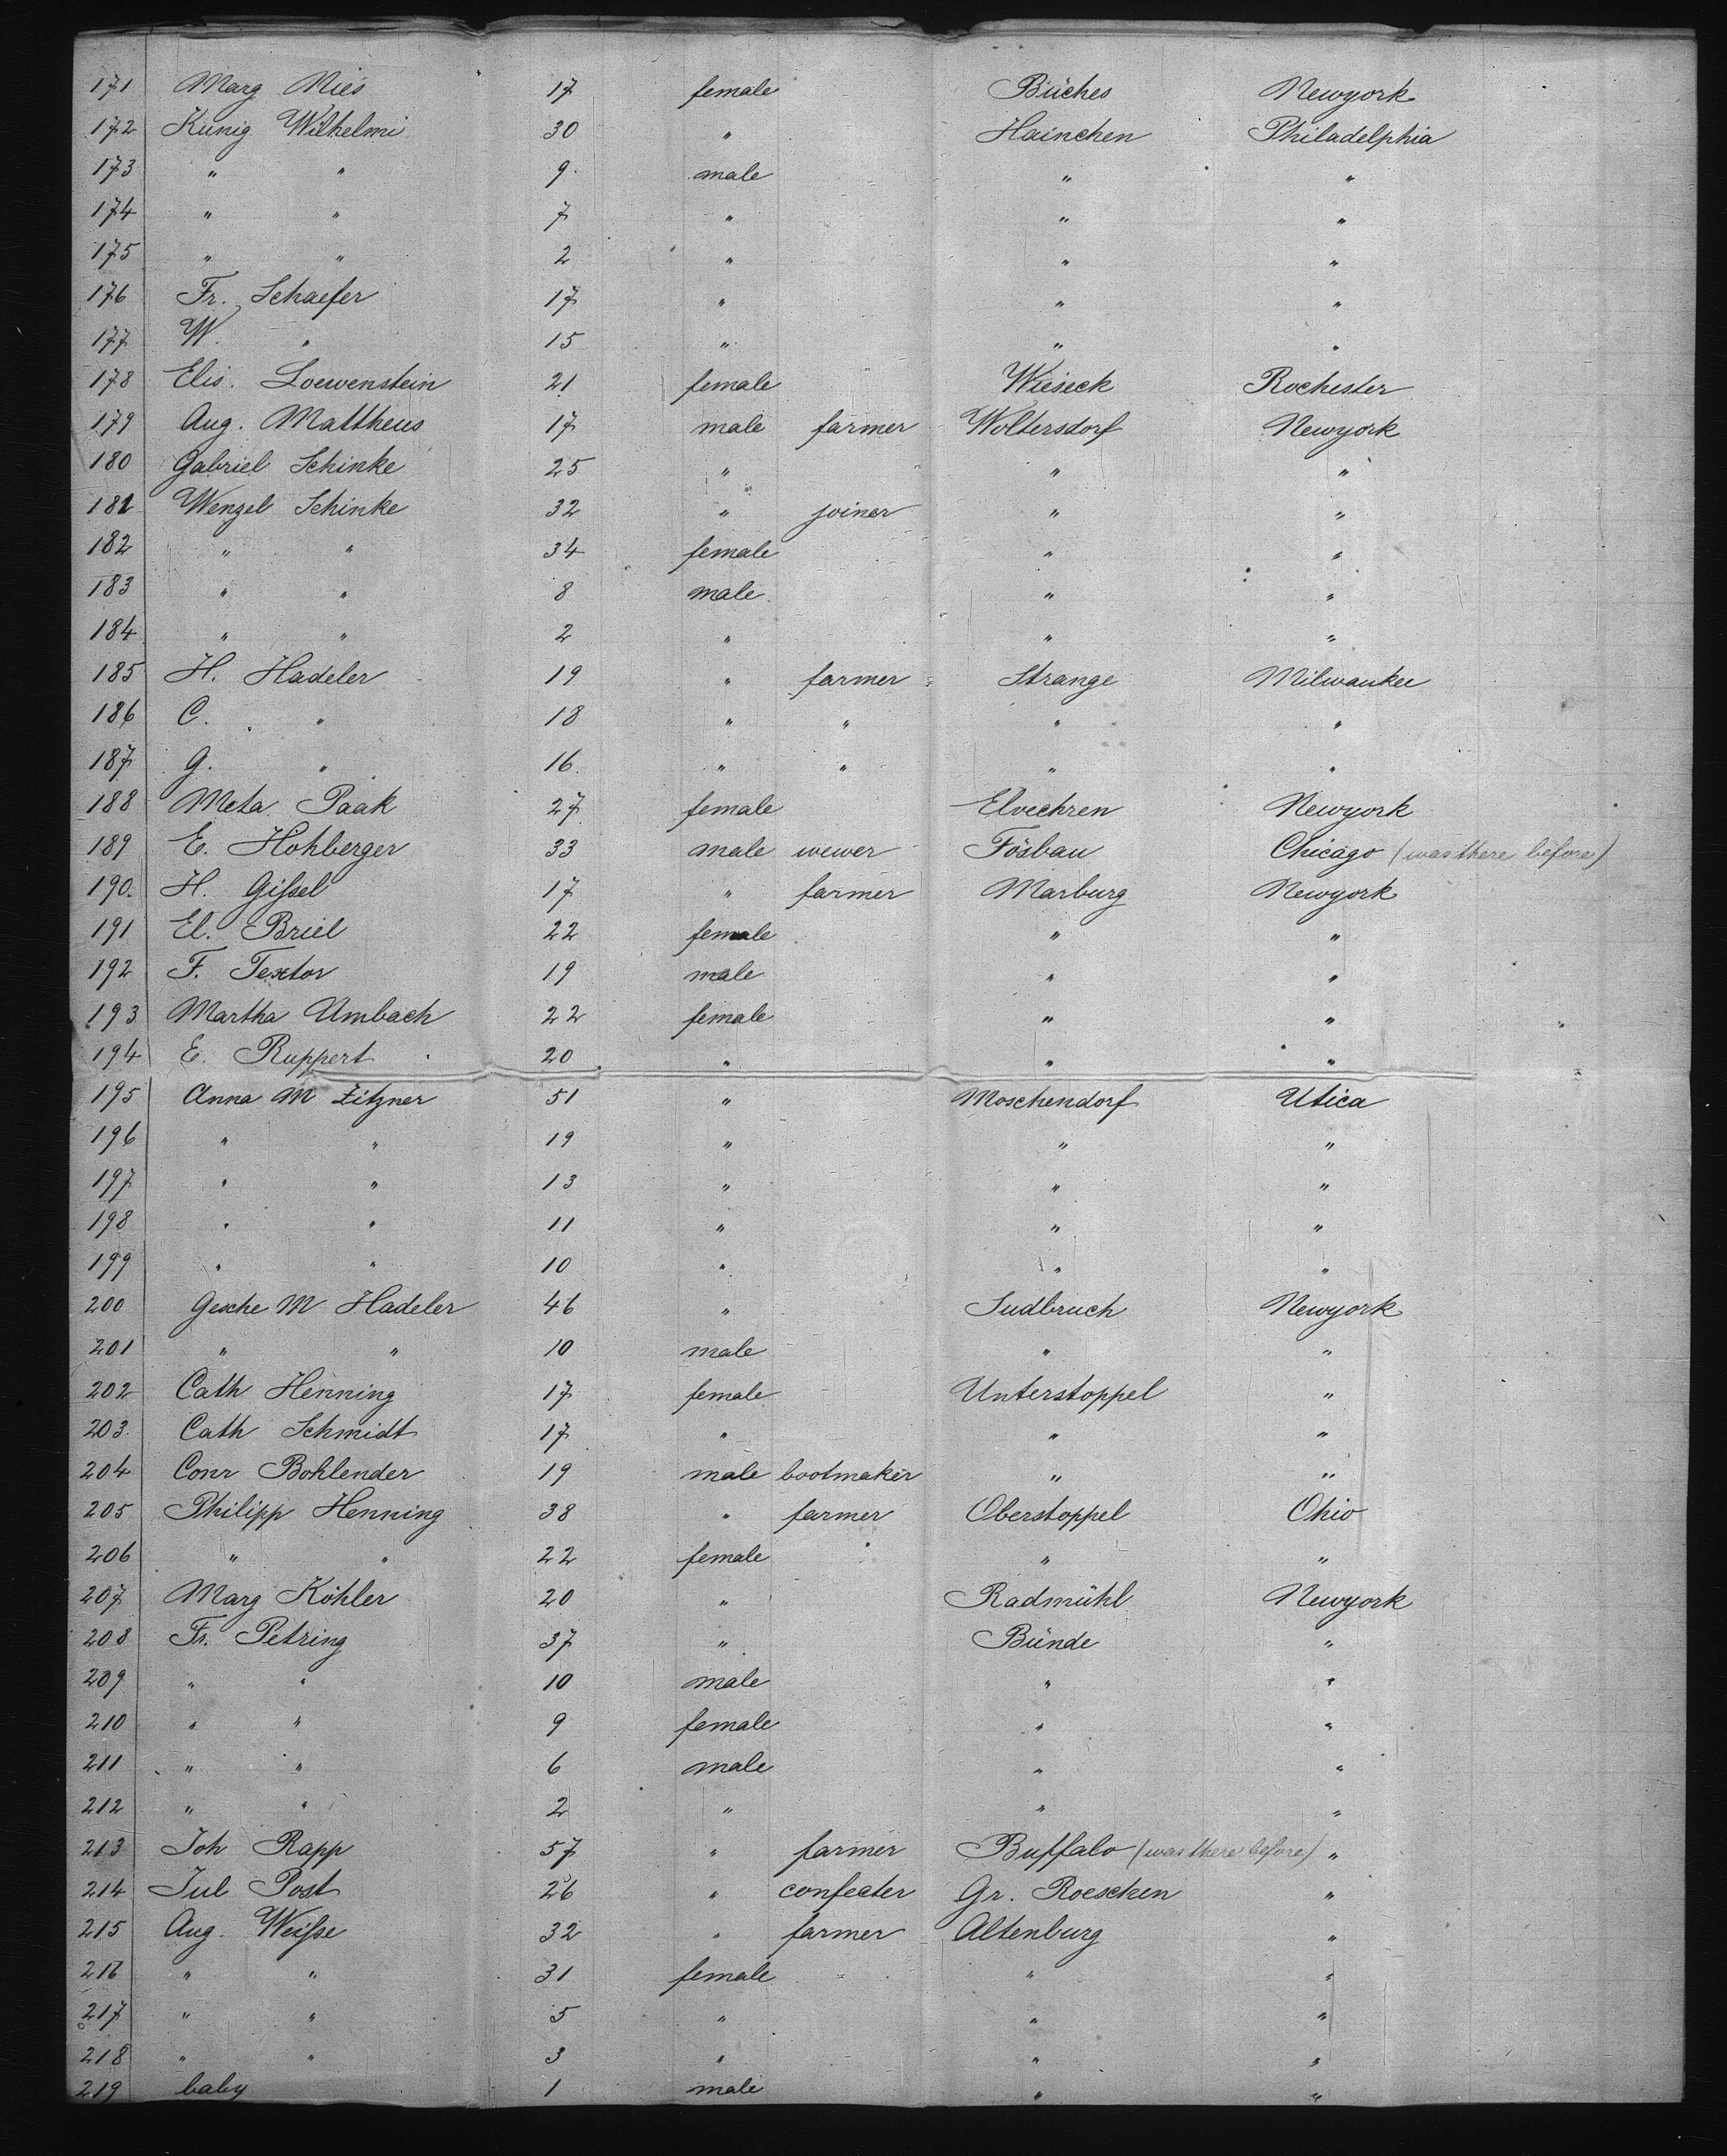 171 Marg Mies 17 female Büches Newyork
172 Kunig. Wilhelmi 30 " Hainchen Philadelphia
173 " " 9 male " "
174 " " 7 " " "
175 " " 2 " " "
176 Fr. Schaefer 17 " " "
177 W. " 15 " " "
178 Elis. Loewenstein 21 female Wieseck Rochester
179 Aug. Mattheus 17 male farmer Woltersdorf Newyork
180 Gabriel Schinke 25 " " "
181 Wenzel Schinke 32 " joiner " "
182 " " 34 female " "
183 " " 8 male " "
184 " " 2 " " "
185 H. Hadeler 19 " farmer Strange Milwaukee
186 C. " 18 " " " "
187 G. " 16 " " " "
188 Meta Paak 27 female Elvechren Newyork
189 E. Hohberger 33 male wewer Fösbau Chicago (was there before)
190. H. Gißel 17 " farmer Marburg Newyork
191 El. Briel 22 female " "
192 F. Textor 19 male " "
193 Martha Umbach 22 female " "
194 E. Ruppert 20 " " "
195 Anna M Zitzner 51 " Moschendorf Utica
196 " " 19 " " "
197 " " 13 " " "
198 " " 11 " " "
199 " " 10 " " "
200 Gesche M Hadeler 46 " Sudbruch Newyork
201 " " 10 male " "
202 Cath Henning 17 female Unterstoppel "
203. Cath Schmidt 17 " " "
204 Conr Bohlender 19 male bootmaker " "
205 Philipp Henning 38 " farmer Oberstoppel Ohio
206 " " 22 female " "
207 Marg Köhler 20 " Radmühl Newyork
208 Fr. Petring 37 " Bünde "
209 " " 10 male " "
210 " " 9 female " "
211 " " 6 male " "
212 " " 2 " " "
213 Joh Rapp 57 " farmer Buffalo (was there before) "
214 Jul Post 26 " confecter Gr. Roeschen "
215 Aug. Weiße 32 " farmer Altenburg "
216 " " 31 female " "
217 " " 5 " " "
218 " " 3 " " "
219 baby 1 male " "